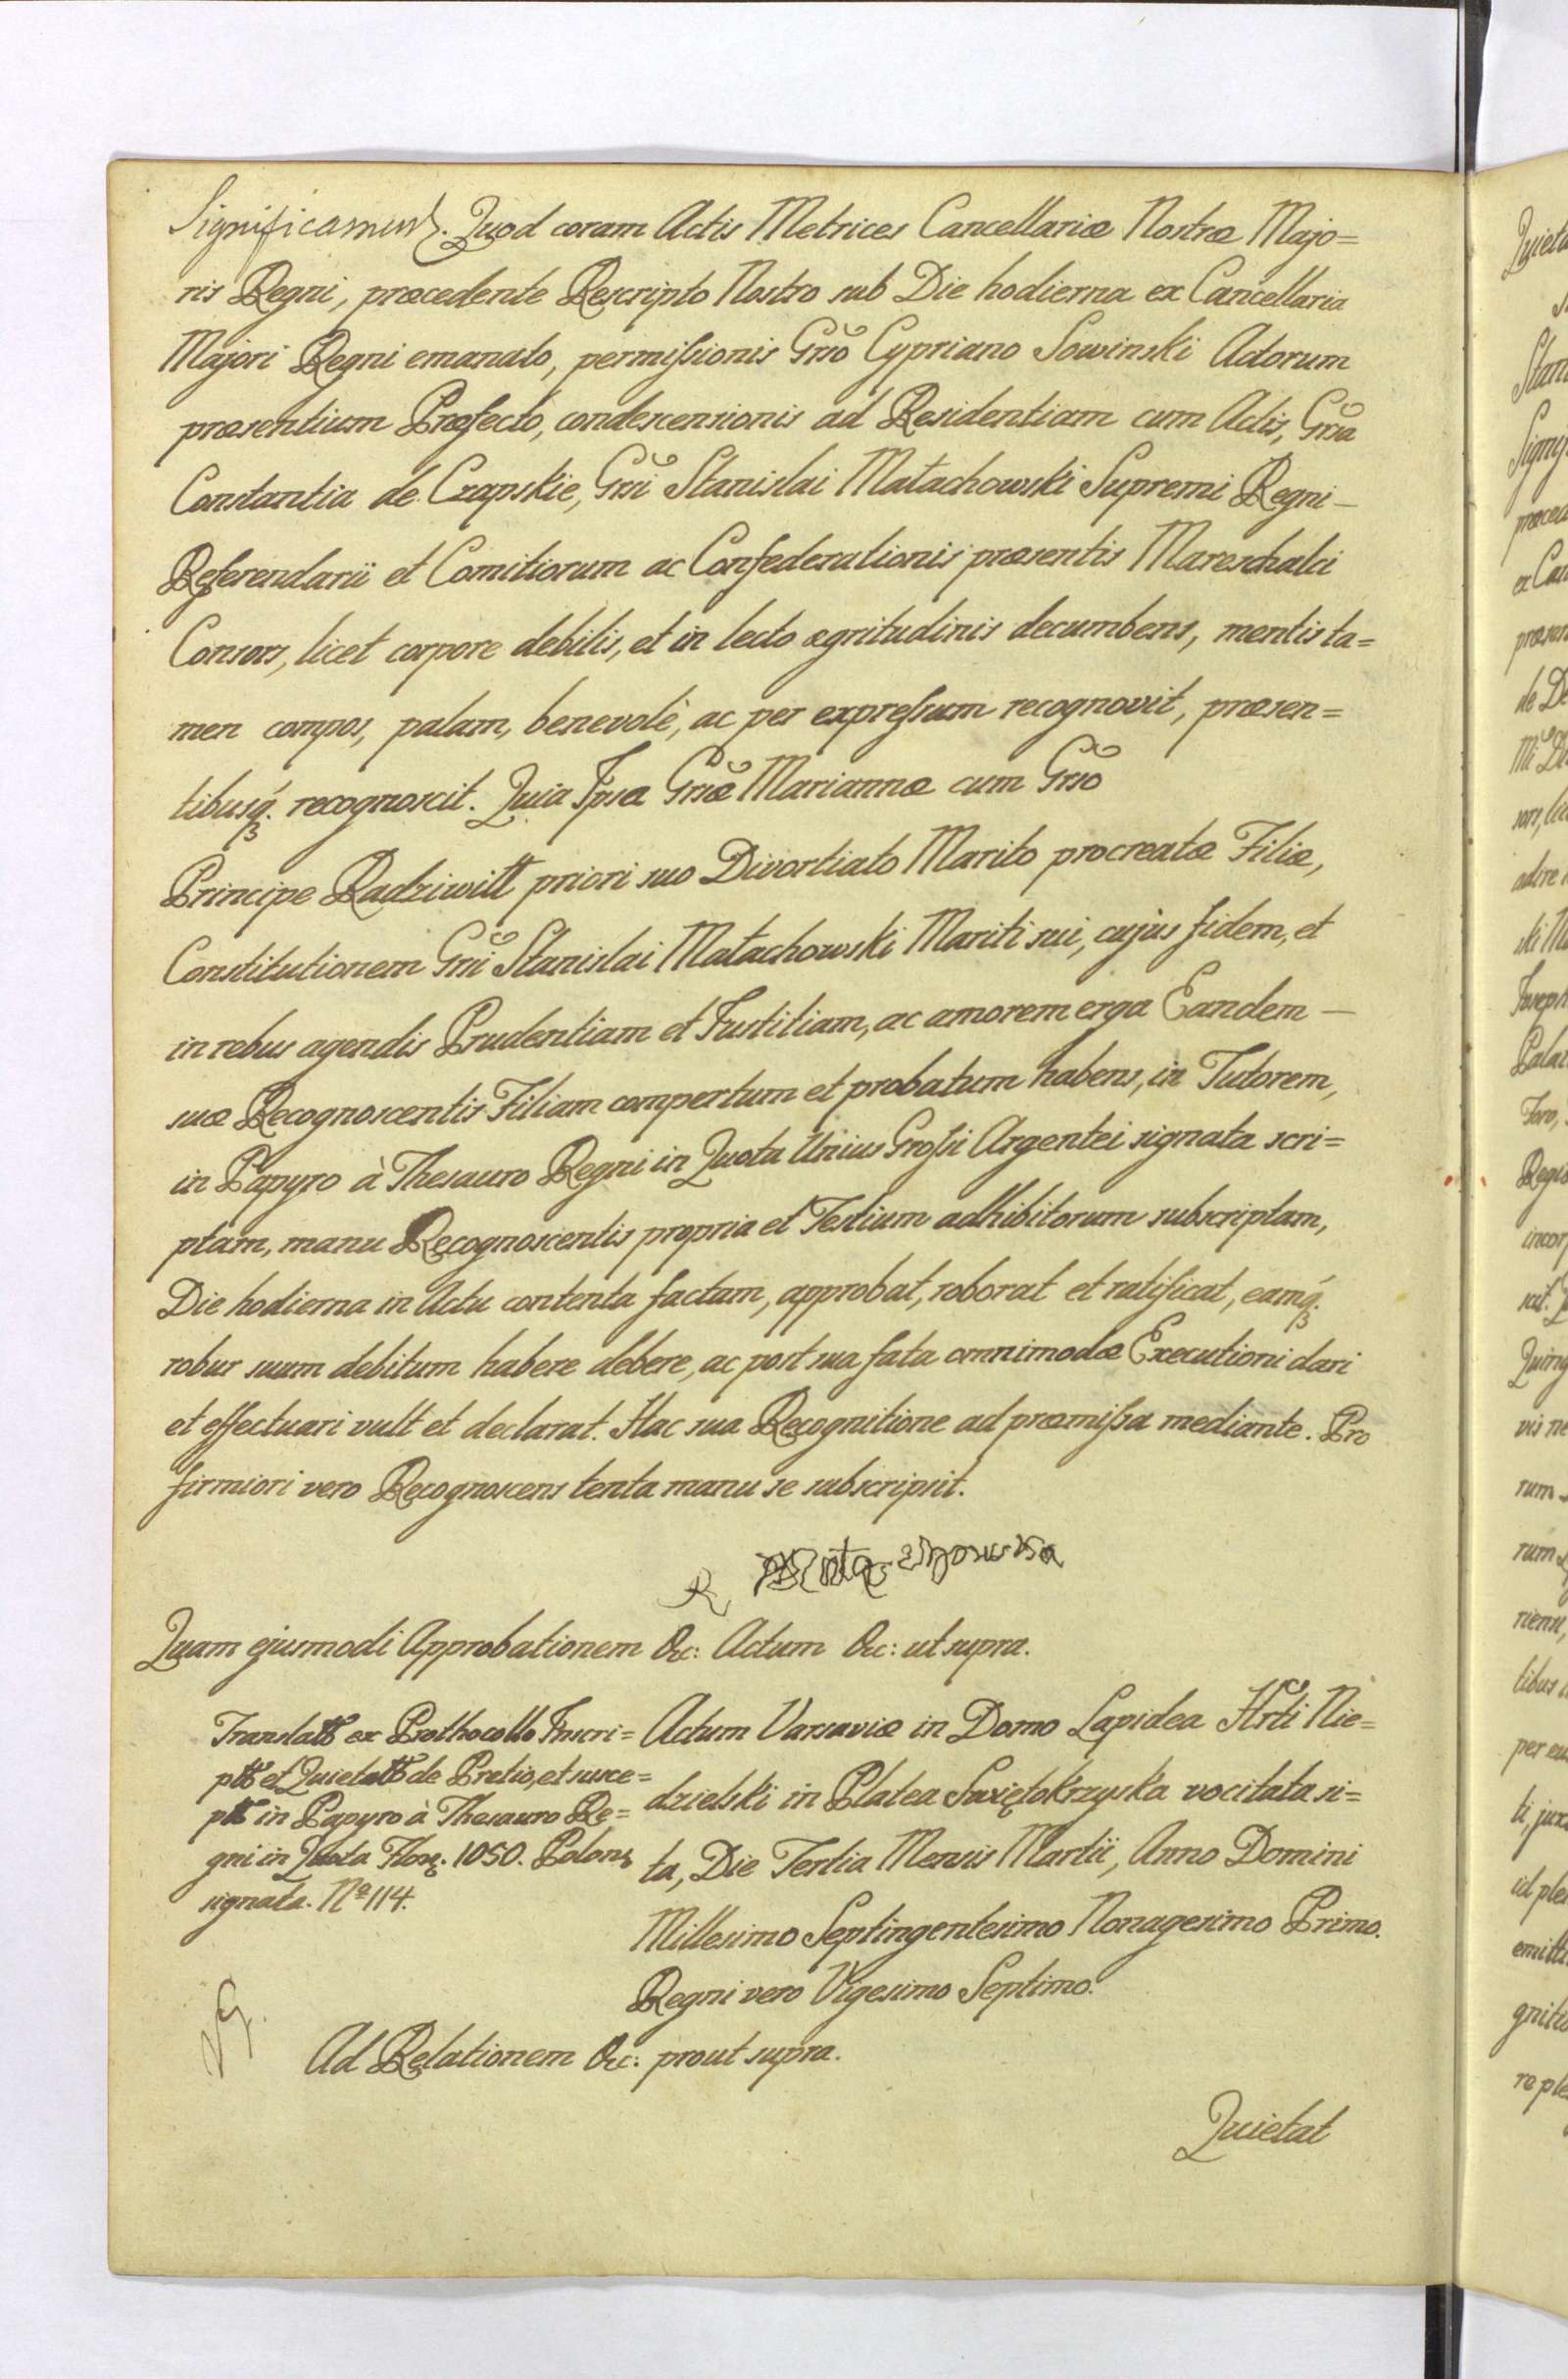 Significamus. Quod coram Actis Metrices Cancellariæ Nostræ Majo=
ris Regni, præcedente Rescripto Nostro sub Die hodierna ex Cancellaria
Majori Regni emanato, permißionis Grso Cypriano Sowinski Actorum
præsentium Præfecto, condescensionis ad Residentiam cum Actis, Grsa
Constantia de Czapskie, Grsi Stanislai Małachowski Supremi Regni –
Referendarii et Comitiorum ac Confederationis præsentis Mareschalci
Consors, licet corpore debilis, et in lecto ægritudinis decumbens, mentis ta=
men compos, palam, benevolè, ac per expreßum recognovit, præsen=
tibusq. recognoscit. Quia Ipsa Grsæ Mariannæ cum Grso
Principe Radziwiłł priori suo Divortiato Marito procreatæ Filiæ,
Constitutionem Grsi Stanislai Małachowski Mariti sui, cujus fidem, et
in rebus agendis Prudentiam et Justitiam, ac amorem erga Eandem –
suæ Recognoscentis Filiam compertum et probatum habens, in Tutorem,
in Papyro à Thesauro Regni in Quota Unius Großi Argentei signata scri=
ptam, manu Recognoscentis propria et Testium adhibitorum subscriptam,
Die hodierna in Actu contenta factam, approbat, roborat et ratificat, eamq.
robur suum debitum habere debere, ac post sua fata omnimodæ Executioni dari
et effectuari vult et declarat. Hac sua Recognitione ad præmißa mediante. Pro
firmiori vero Recognoscens tenta manu se subscripsit.
Quam ejusmodi Approbationem &c: Actum &c: ut supra.
Translatt ex Prothocollo Inscri=
ptt et Quietatt de Pretio, et susce=
ptt in Papyro à Thesauro Re=
gni in Quota Flor. 1050. Polon
signata. No 114.
Actum Varsaviæ in Domo Lapidea Hrti Nie=
dzielski in Platea Swiętokrzyska vocitata si=
ta, Die Tertia Mensis Martii, Anno Domini
Millesimo Septingentesimo Nonagesimo Primo.
Regni vero Vigesimo Septimo.
Ad Relationem &c: prout supra.
Quietat